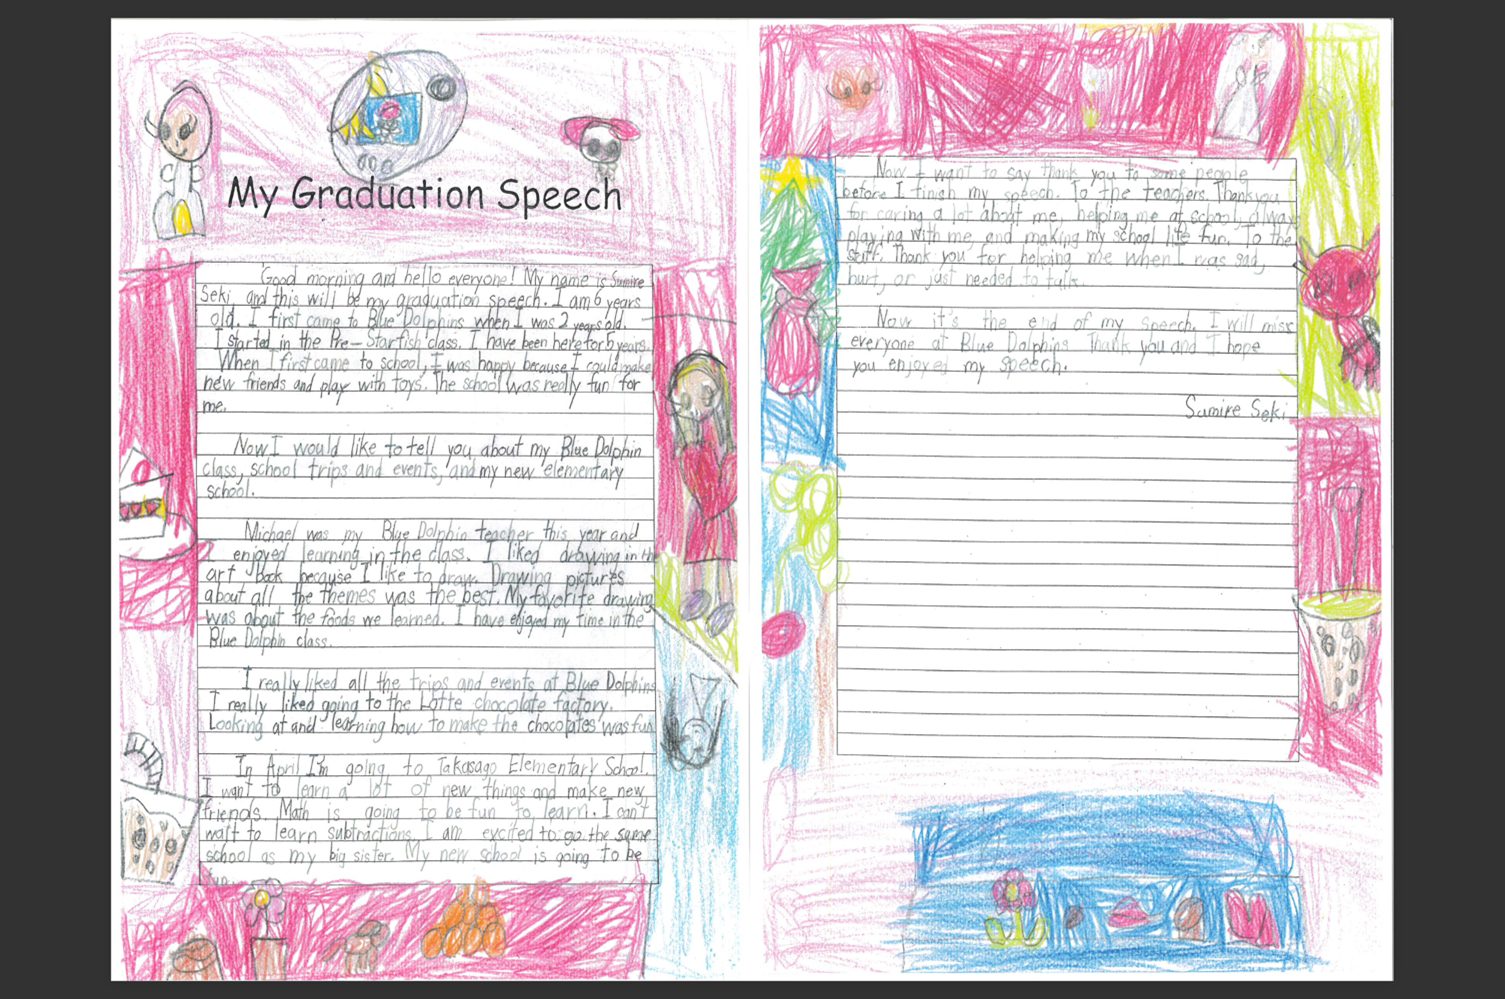 My Graduation Speech
Good morning and hello everyone! My name is Sumire
Seki, and this will be my graduation speech. I am 6 years
old. I first came to Blue Dolphins when I was 2 years old.
I started in the Pre-Starfish class. I have been here for 5 years.
When I first came to school, I was happy because I could make
new friends and play with toys. The school was really fun for
me.
Now I would like to tell you about my Blue Dolphin
class, school trips and events, and my new elementary
school.
Michael was my Blue Dolphin teacher this year and
I enjoyed learning in the class. I liked drawing in the
art book because I like to draw. Drawing pictures
about all the themes was the best. My favorite drawing
was about the foods we learned. I have enjoyed my time in the
Blue Dolphin class.
I really liked all the trips and events at Blue Dolphins
I really liked going to the Lotte chocolate factory.
Looking at and learning how to make the chocolates was fun
In April I'm going to Takasago Elementary School.
I want to learn a lot of new things and make new
friends. Math is going to be fun to learn. I can't
wait to learn subtractions. I am excited to go the same
school as my big sister. My new school is going to be
fun.
Now I want to say thank you to some people
before I finish my speech. To the teachers. Thank you
for caring a lot about me, helping me at school, always
playing with me, and making my school life fun. To the
staff. Thank you for helping me when I was sad,
hurt, or just needed to talk.
Now it's the end of my speech. I will miss
everyone at Blue Dolphins. Thank you and I hope
you enjoyed my speech.
Sumire Seki